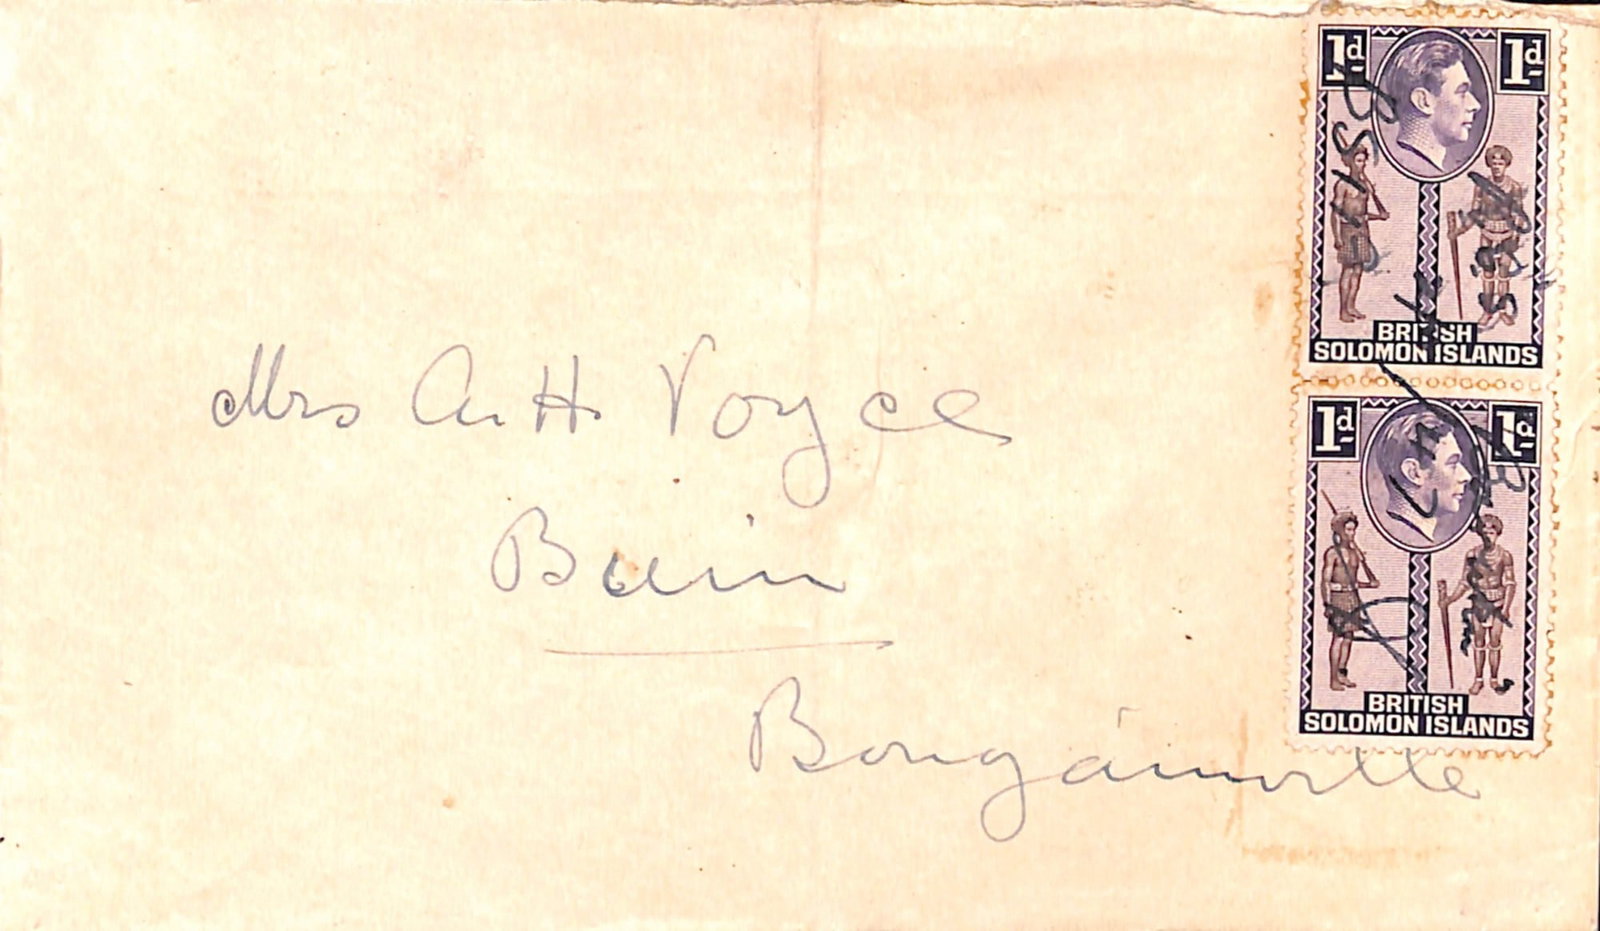 1d 1d
BRITISH
SOLOMON ISLANDS
1d 1d
BRITISH
SOLOMON ISLANDS
Mrs A. H. Voyce
Buin
Bougainville